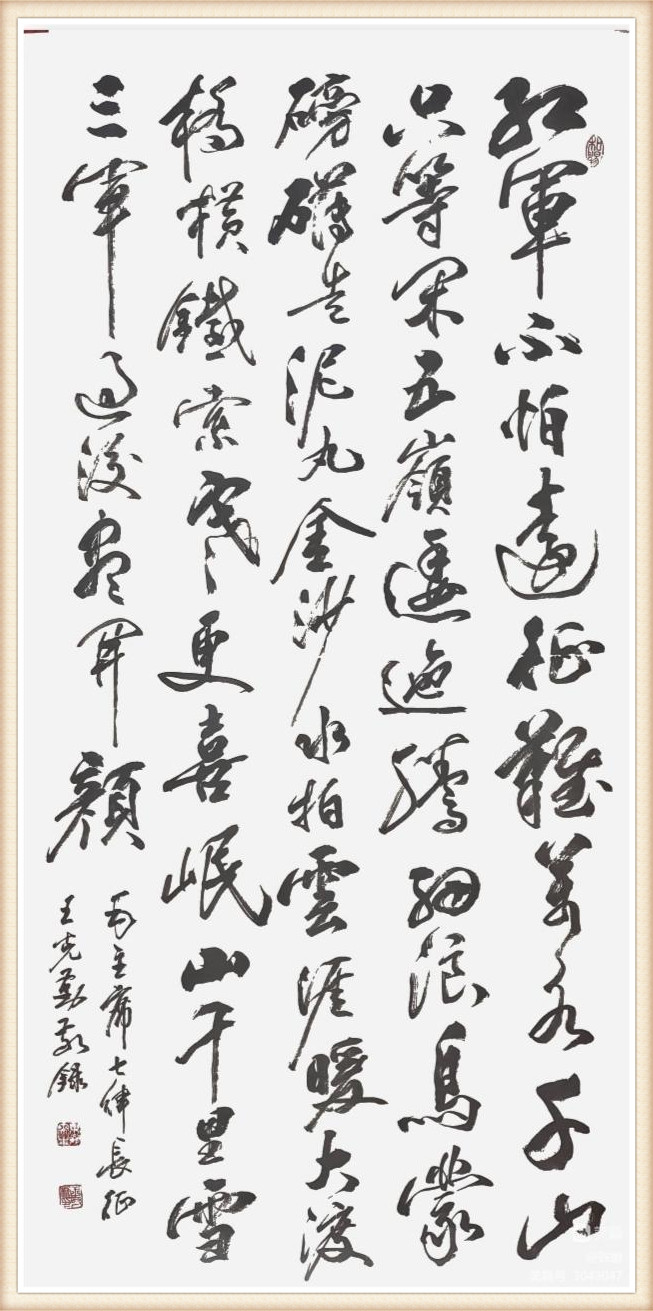 紅軍不怕遠征難萬水千山
只等闲五嶺逶迤騰細浪烏蒙
磅礴走泥丸金沙水拍雲涯暖大渡
橋橫鐵索寒更喜岷山千里雪
三軍過後盡開顏
毛主席七律長征
王克勤敬錄